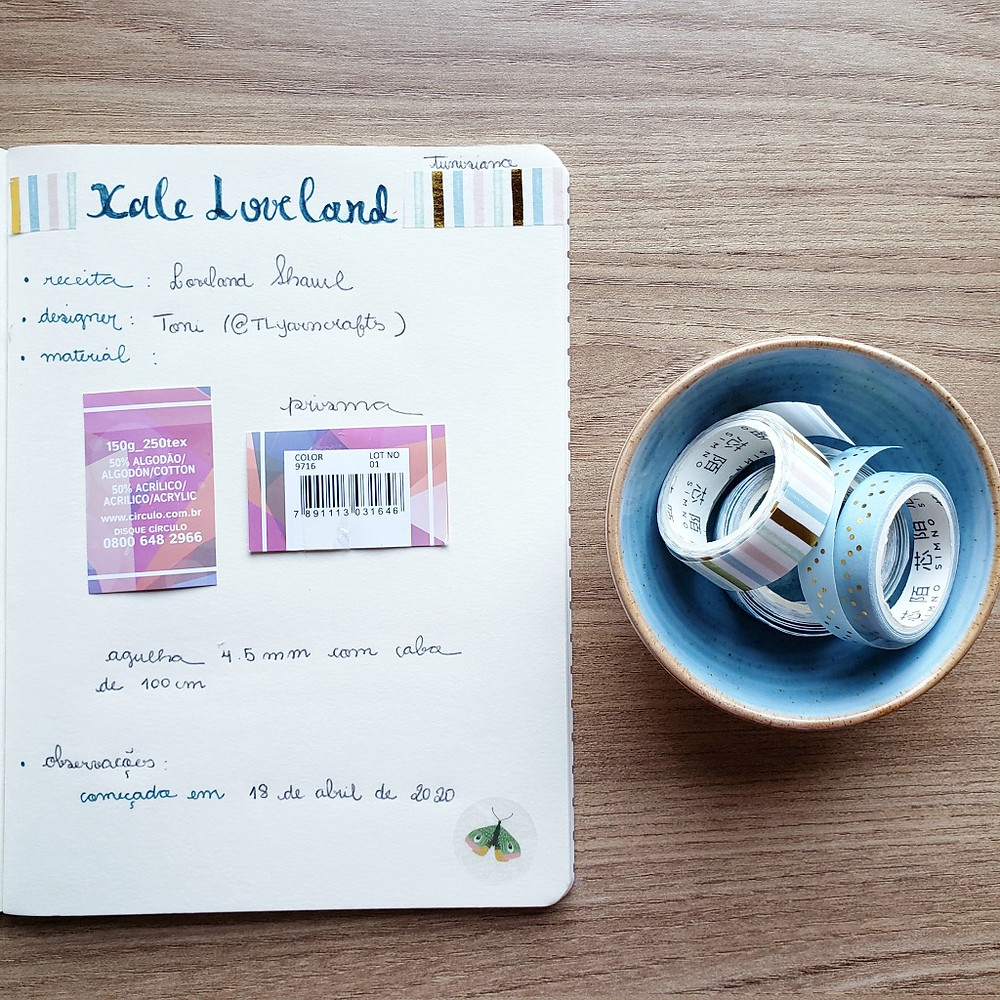 Tunisiana
Xale Loveland
• receita : Loveland Shawl
• designer : Toni (@TLyarncrafts)
• material :
150g_250tex
50% ALGODÃO/
ALGODÓN/COTTON
50% ACRÍLICO/
ACRILICO/ACRYLIC
www.circulo.com.br
DISQUE CÍRCULO
0800 648 2966
prisma
COLOR LOT NO
9716 01
7 891113 031646
agulha 4.5 mm com cabo
de 100 cm
• observações:
começada em 18 de abril de 2020
芯陌芯
SIMNO
芯陌芯
SIMNO SIMNO